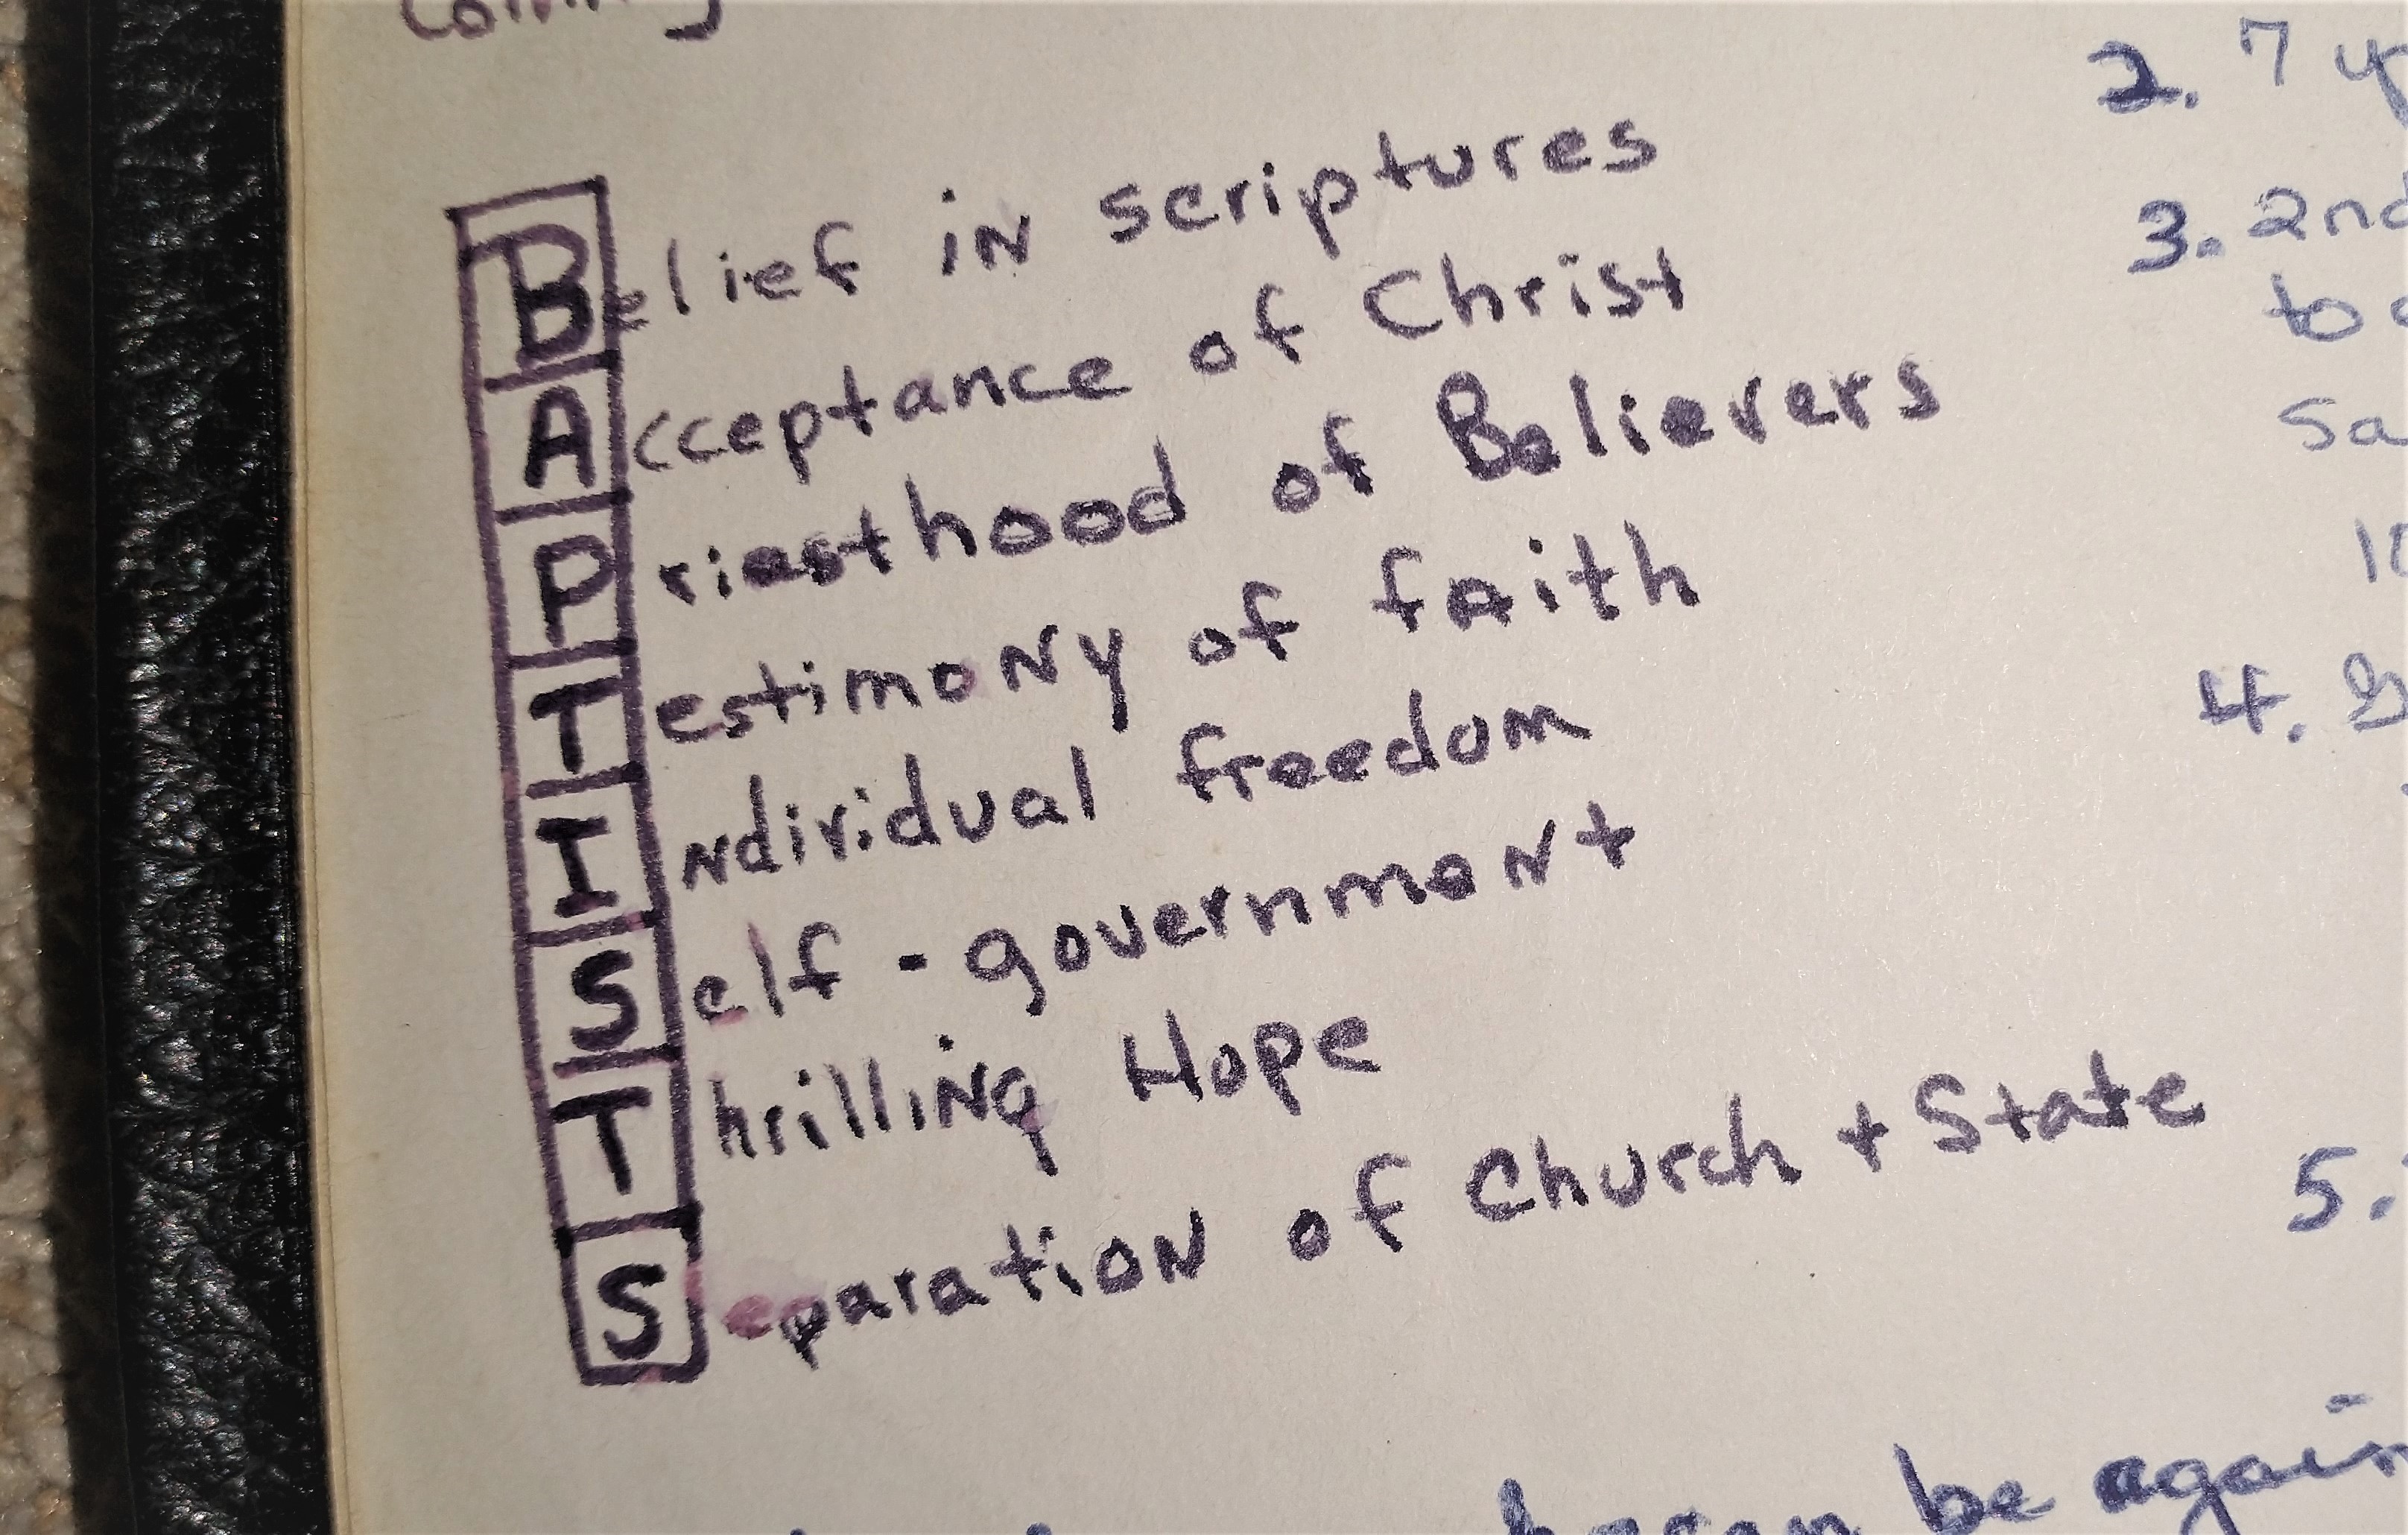 2. 7
Belief in scriptures
3. 2nd
Acceptance of Christ
to
Priesthood of Believers
Sa
Testimony of faith
4.
Individual freedom
Self-government
Thrilling Hope
Separation of Church + State
5.
be again